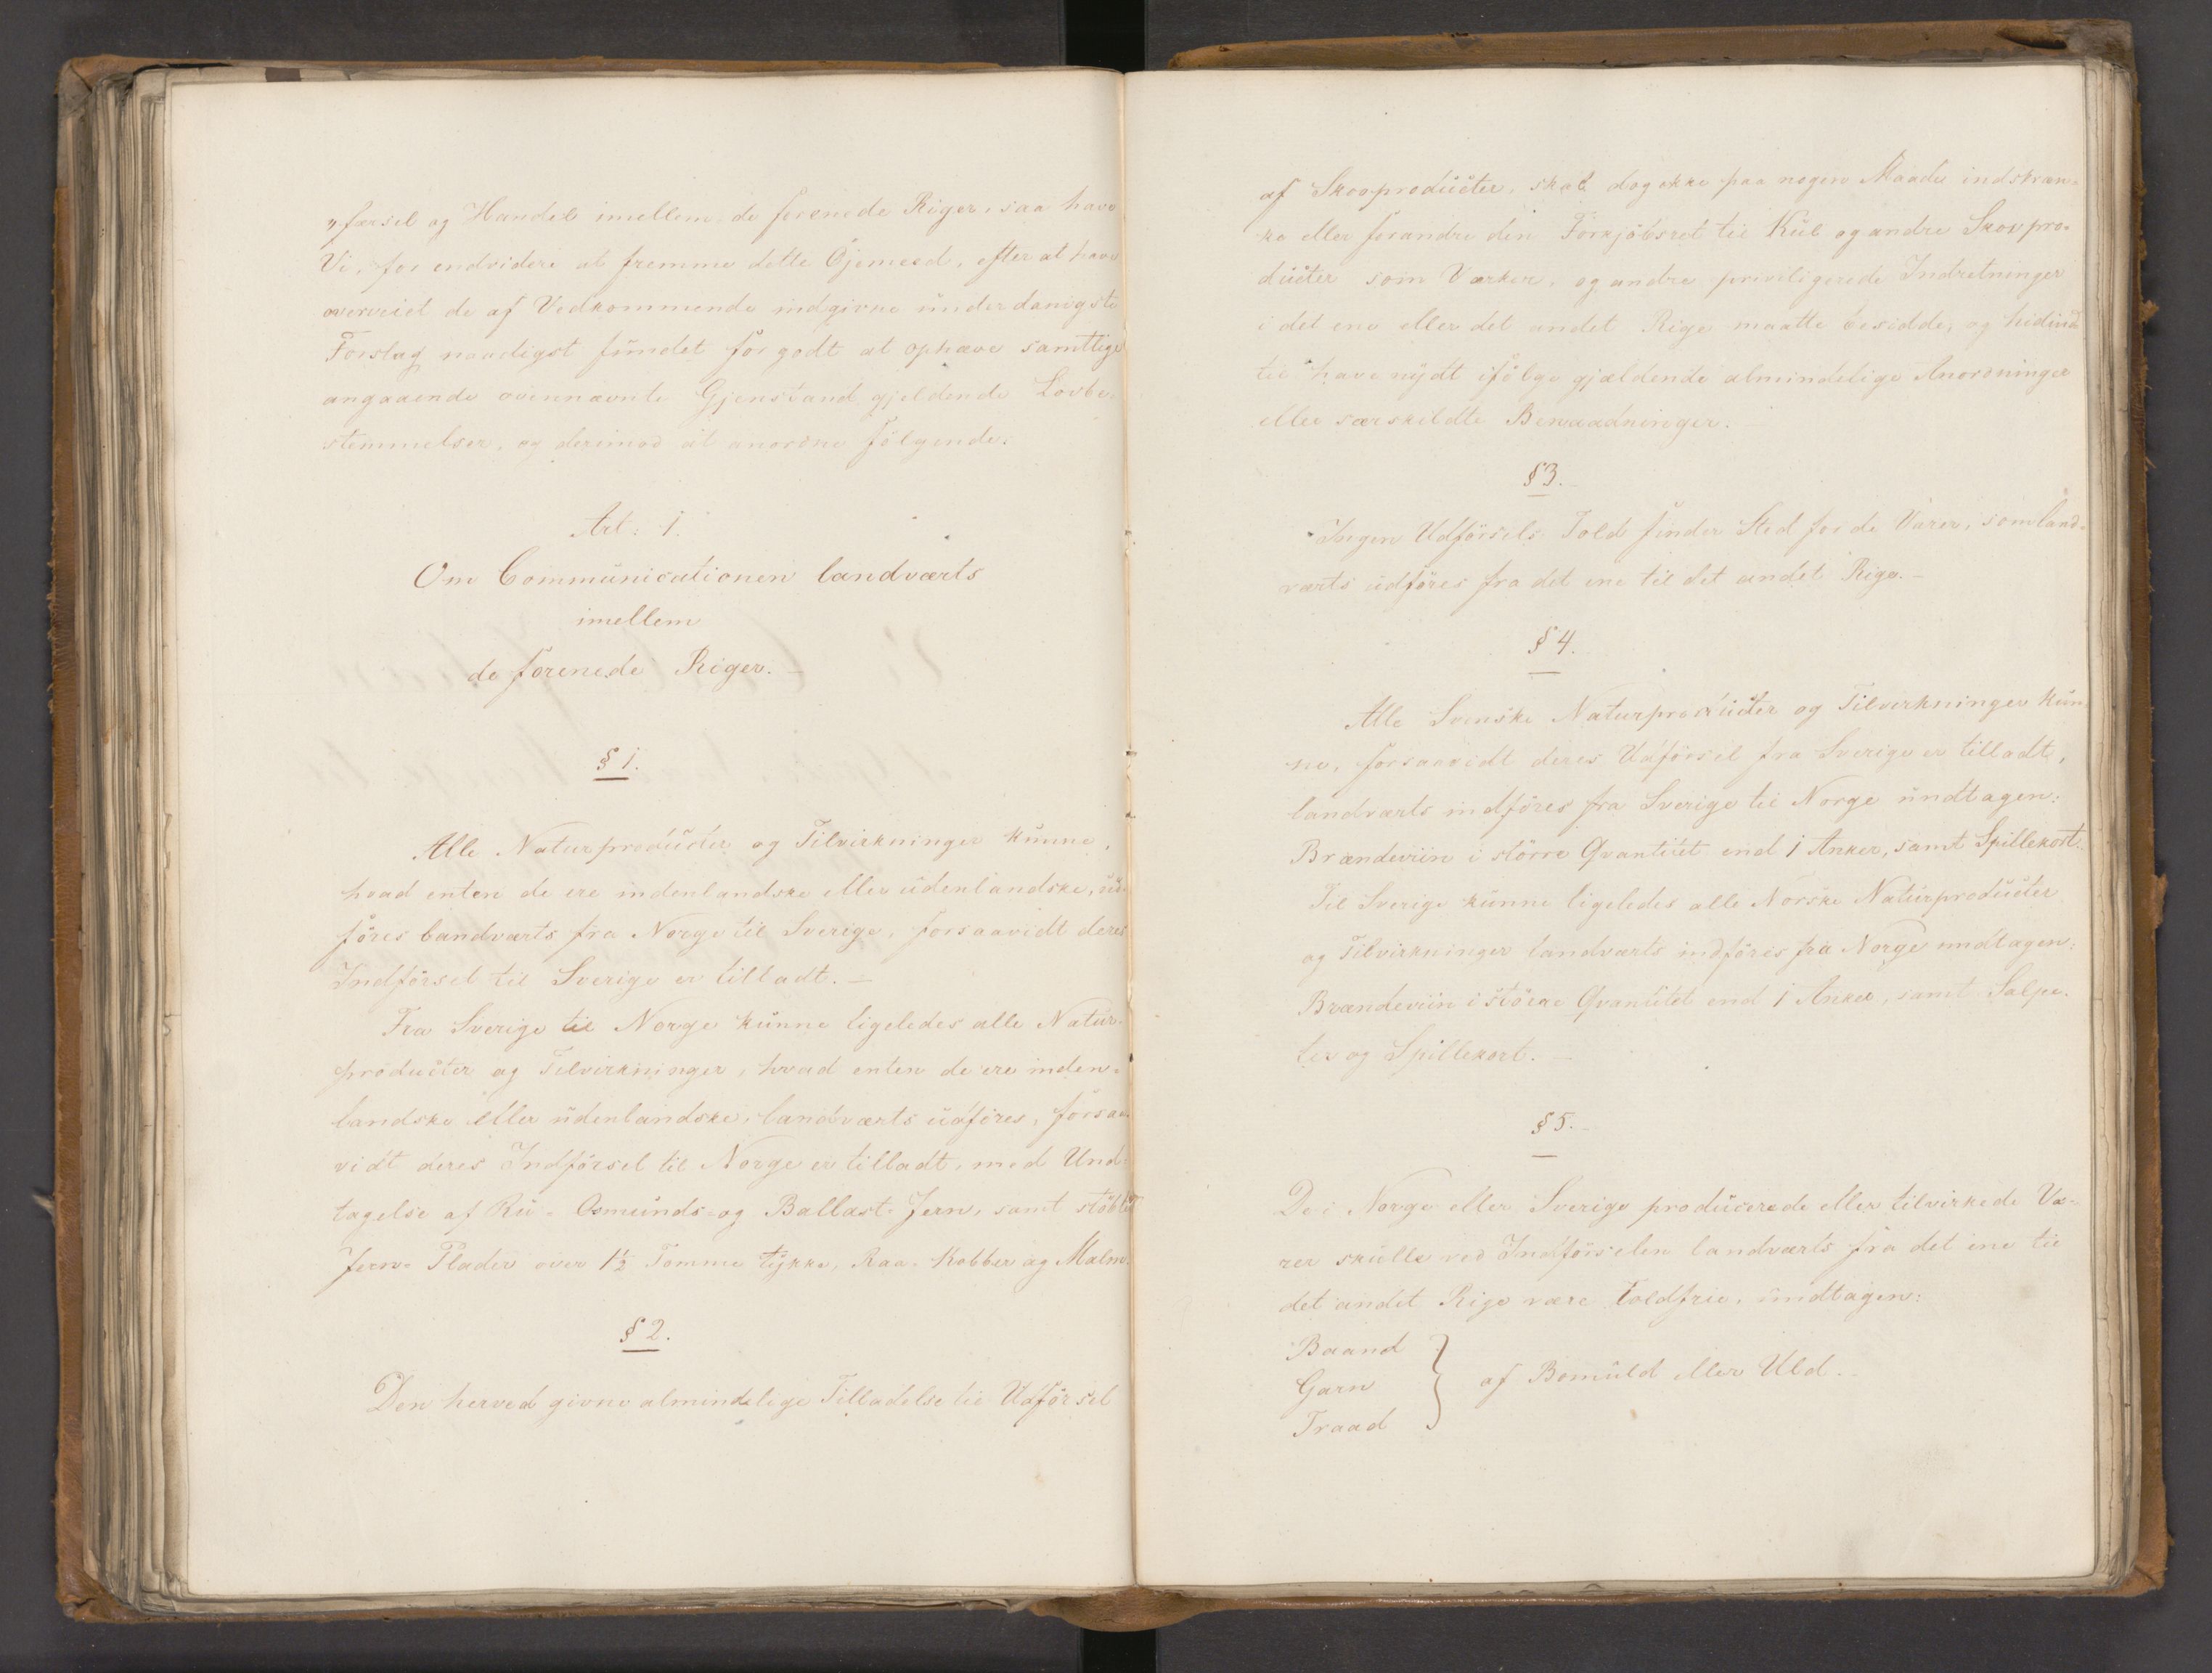 „færsel og Handel imellem de forenede Riger, saa have
Vi, for endvidere at fremme dette Öjemeed, efter at have
overveiet de af Vedkommende indgivne ünderdanigste
Forslag naadigst fündet for godt at ophæve samtlige
angaaende ovennævnte Gjenstand gjeldende Lovbe-
stemmelser, og derimod at anordne fölgende:
Art: 1.
Om Communicationen landværts
imellem
de forenede Riger.—
§ 1.
Alle Naturprodücter og Tilvirkninger künne,
hvad enten de ere indenlandske eller üdenlandske, üd-
föres landværts fra Norge til Sverige, forsaavidt deres
Indförsel til Sverige er tilladt.—
Fra Sverige til Norge künne ligeledes alle Natur-
prodücter og Tilvirkninger, hvad enten de ere inden-
landske eller üdenlandske, landværts üdföres, forsaa-
vidt deres Indförsel til Norge er tilladt, med Und-
tagelse af Rü- Osmünds- og Ballast-Jern, samt stöbte
Jern-Plader over 1½ Tomme tykke, Raa-Kobber og Malm.
§ 2.
Den herved givne almindelige Tilladelse til Udförsel
af Skovprodücter, skal dog ikke paa nogen Maade indskræn-
ke eller forandre den Forkjöbsret til Kül og andre Skovpro-
dücter som Værker, og andre priviligerede Indretninger
i det ene eller det andet Rige maatte besidde, og hidind-
til have nydt ifölge gjældende almindelige Anordninger
eller særskildte Benaadninger.
§ 3.
Ingen Udförsels Told finder Sted for de Varer, som land-
værts üdföres fra det ene til det andet Rige.—
§ 4.
Alle Svenske Naturprodücter og Tilvirkninger kün-
ne, forsaavidt deres Udförsel fra Sverige er tilladt,
landværts indföres fra Sverige til Norge ündtagen:
Brændeviin i större Qvantitet end 1 Anker, samt Spillekort.
Til Sverige künne ligeledes alle Norske Naturprodücter
og Tilvirkninger landværts indföres fra Norge undtagen:
Brændeviin i större Qvantitet end 1 Anker, samt Salpe-
ter og Spillekort.—
§ 5.
De i Norge eller Sverige prodücerede eller tilvirkede Va-
rer skülle ved Indförselen landværts fra det ene til
det andet Rige være toldfrie, ündtagen:
Baand
Garn } af Bomüld eller Uld.
Traad